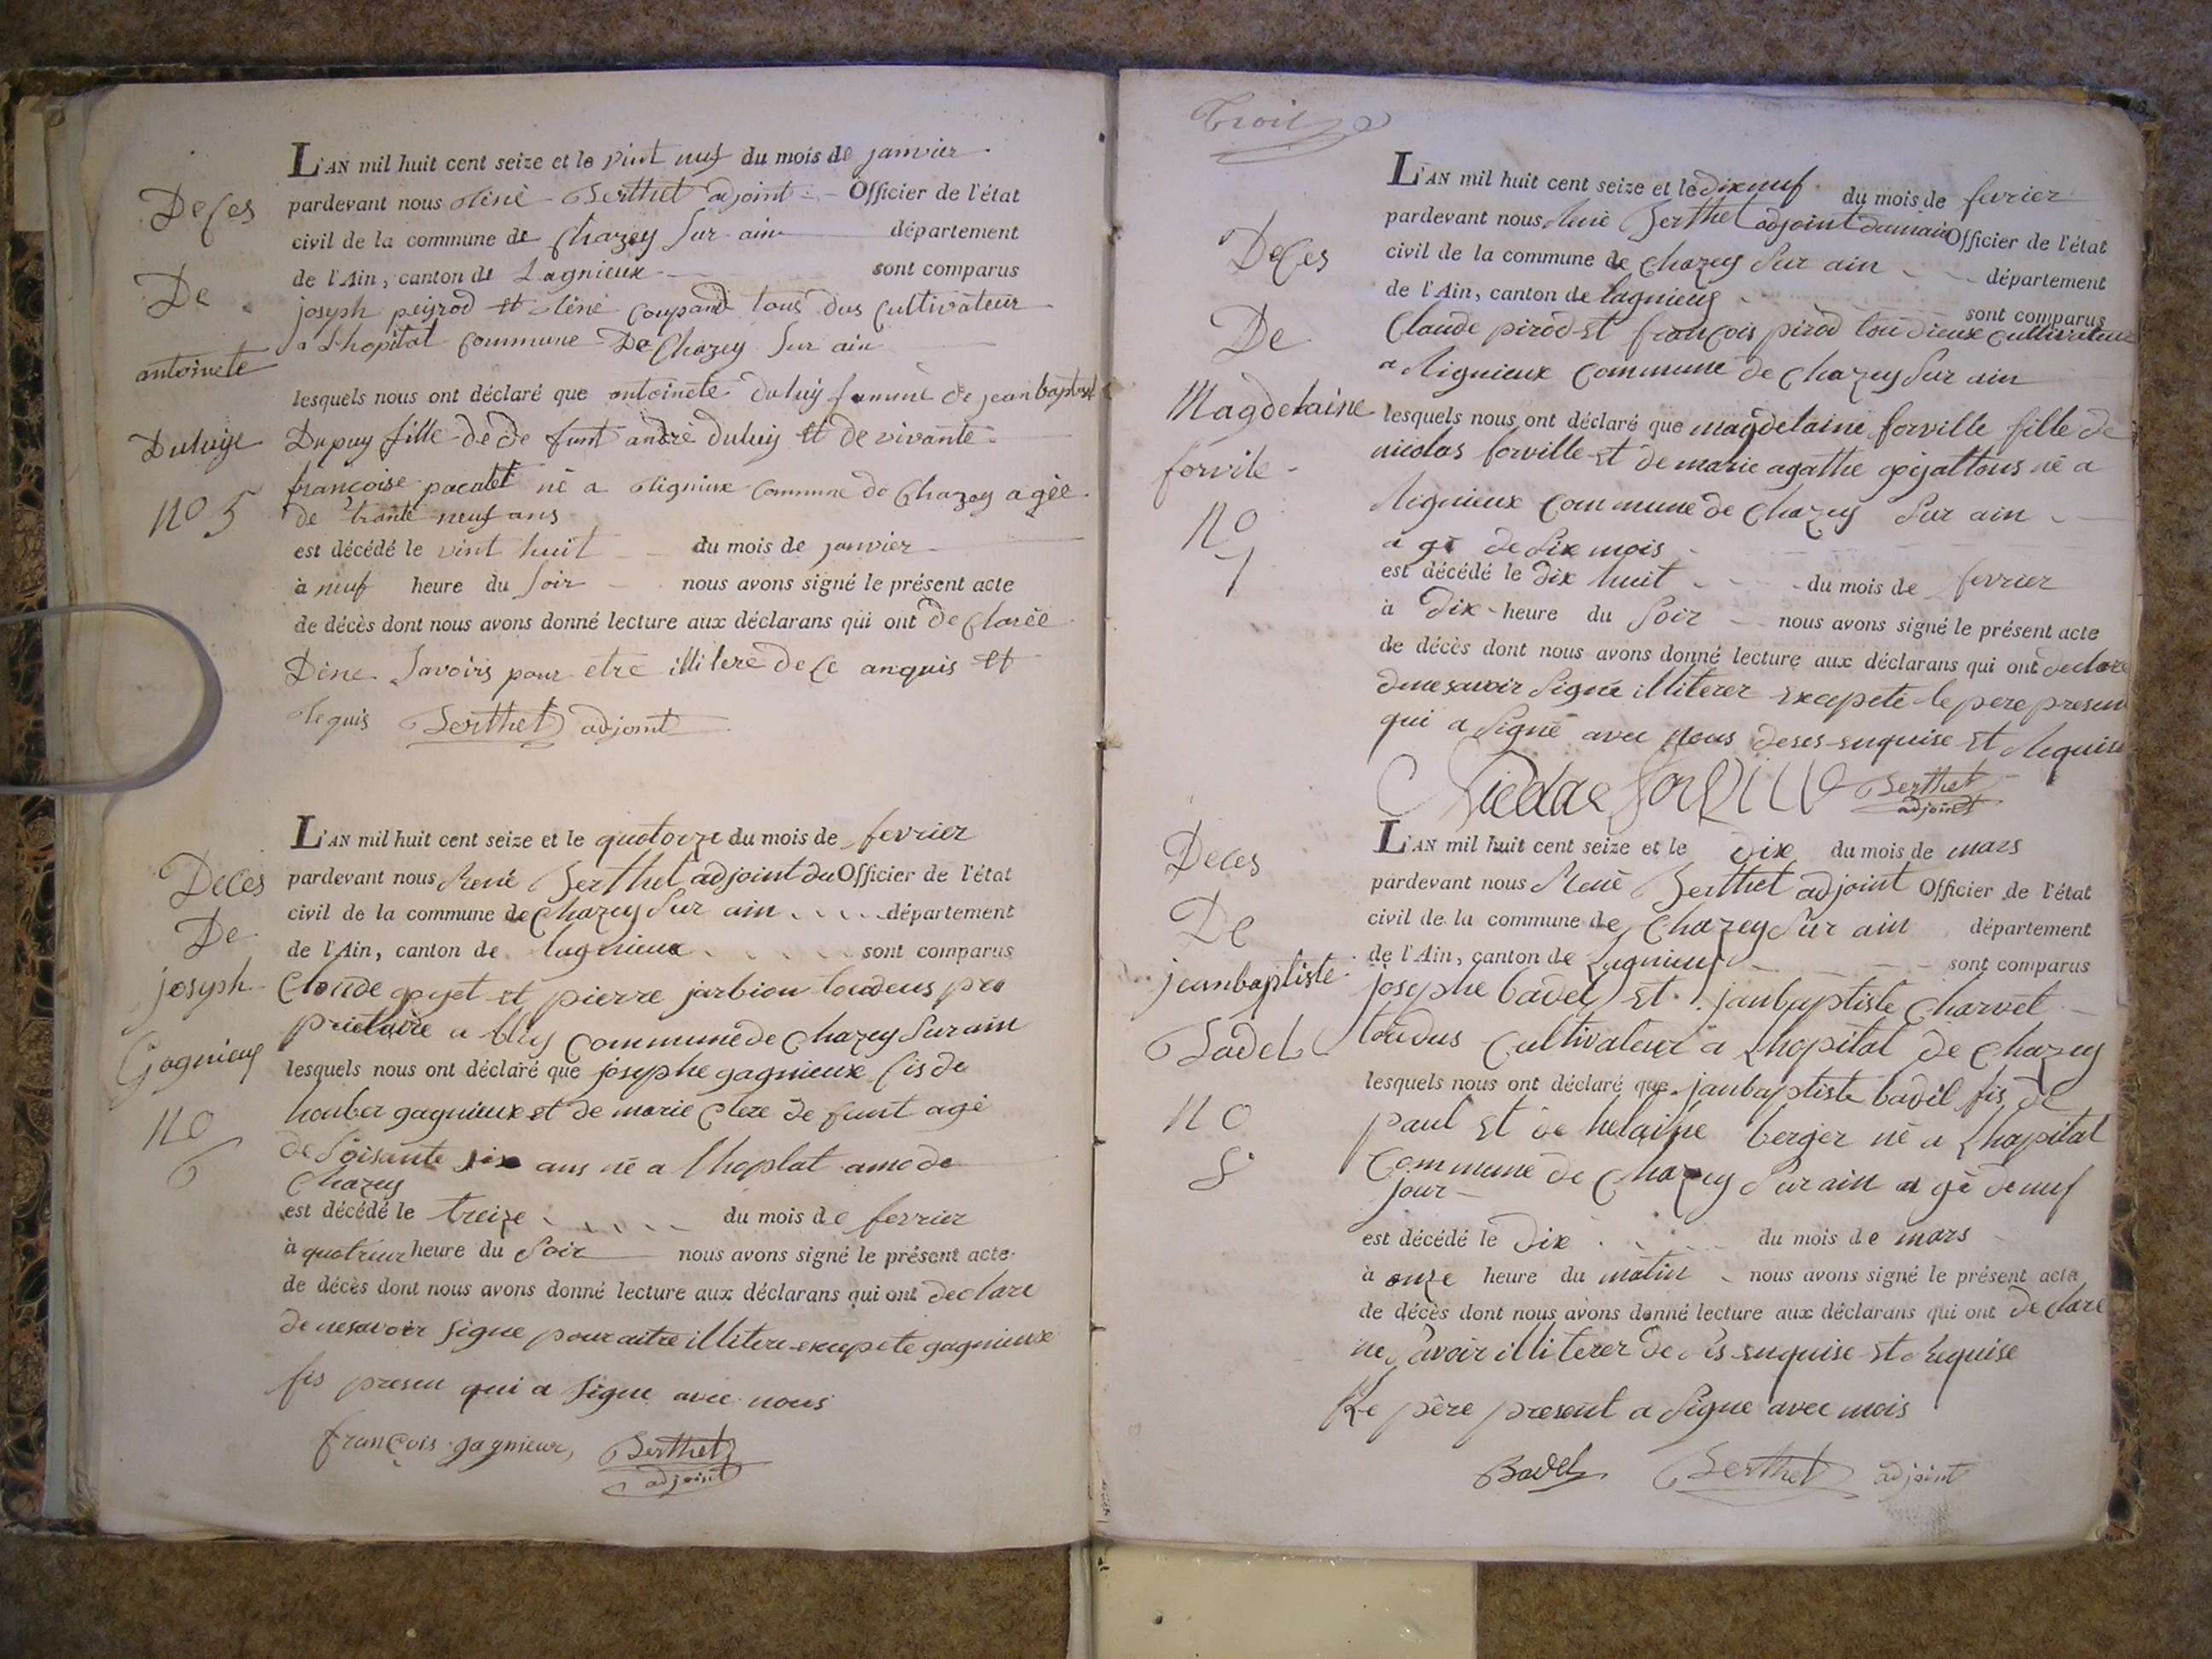 Deces
De
antoinete
Duluije
no 5
L'AN mil huit cent seize et le vint neuf du mois de janvier
pardevant nous Réné Berthet adjoint Officier de l'état
civil de la commune de Chazey Sur ain département
de l'Ain, canton de Lagnieux sont comparus
joseph peijrod et Réné coupand tous dus Cultivateur
a Lhopital Commune De Chazey Sur ain
lesquels nous ont déclaré que antoinete duluij famme de jean baptist
Dupuy fille de de funt andré duluij et de vivante
francoise pacalet né a Rignieux Commune de Chazey agée
de trante neuf ans
est décédé le vint huit du mois de janvier
à neuf heure du Soir nous avons signé le présent acte
de décès dont nous avons donné lecture aux déclarans qui ont de Clarée
Dene Savoirs pour etre illitere de Ce anquis et
Requis Berthet adjoint
Deces
De
joseph
Gagnieux
no
6
L'AN mil huit cent seize et le quatorze du mois de fevrier
pardevant nous René Berthet adjoint du Officier de l'état
civil de la commune de Chazey Sur ain département
de l'Ain, canton de lagnieux sont comparus
Cloude goyet et pierre jarbion toudeus pro
prietaire a bliy Commune de Chazey Sur ain
lesquels nous ont déclaré que josephe gagnieux fis de
houber gagnieux et de marie Clere de funt agé
de Soisante six ans né a lhoplat amo de
Chazey
est décédé le treize du mois de fevrier
à quatreur heure du Soir nous avons signé le présent acte
de décès dont nous avons donné lecture aux déclarans qui ont declare
de nesavoir signe pour aitre illitere excepete gagnieux
fis presen qui a signe avec nous
françois gagnieux, Berthet
adjoint
Trois
Deces
De
Magdelaine
forvile
no
7
L'AN mil huit cent seize et le dixneuf du mois de fevrier
pardevant nous René Berthet adjoint dumaire Officier de l'état
civil de la commune de Chazey Sur ain département
de l'Ain, canton de lagnieux sont comparus
Claude pirod et françois pirod tou dieux cultivateur
a Rignieux Commune de Chazey Sur ain
lesquels nous ont déclaré que magdelaine forville fille de
nicolas forville et de marie agathe goijattous né a
Rignieux Commune de Chazey Sur ain
a gé de Six mois
est décédé le dix huit du mois de fevrier
à Dix heure du Soir nous avons signé le présent acte
de décès dont nous avons donné lecture aux déclarans qui ont declare
denesavoir Signé illiterer excepete le pere presen
qui a Signé avec nous deses enquise et Requise
Berthet
adjoint
Deces
De
jeanbaptiste
Badel
no
8
L'AN mil huit cent seize et le dix du mois de mars
pardevant nous René Berthet adjoint Officier de l'état
civil de la commune de Chazey Sur ain département
de l'Ain, canton de Lagnieux sont comparus
josephe badel et janbaptiste Charvet
toudus Cultivateur a Lhopital de Chazey
lesquels nous ont déclaré que janbaptiste badil fis de
paul et de helaine berger né a Lhapital
Commune de Chazey Sur ain a gé de nuf
jour
est décédé le Dix du mois de mars
à onze heure du matin nous avons signé le présent acte
de décès dont nous avons donné lecture aux déclarans qui ont declare
ne Savoir illiterer de ses enquise et Requise
Le père present a Signe avec mois
Badel Berthet adjoint